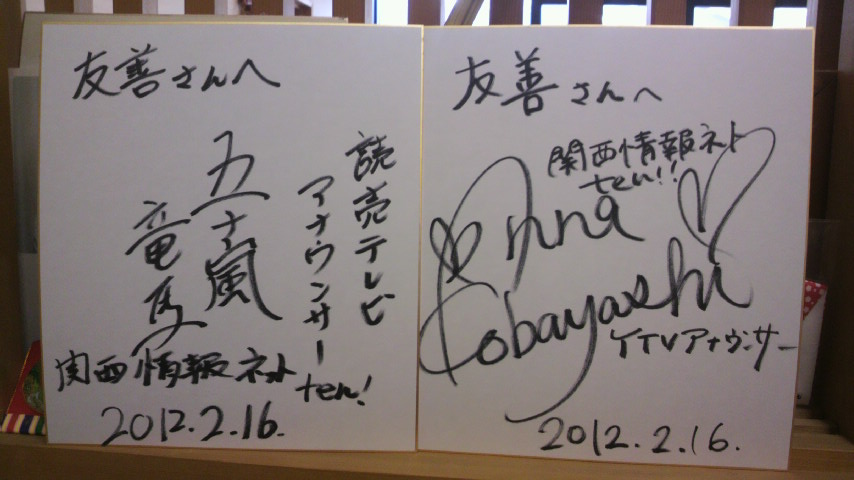 友善さんへ
読売テレビ
アナウンサー
五十嵐
竜馬
関西情報ネット
ten!
2012.2.16.
友善さんへ
関西情報ネット
ten!!
Anna
Kobayashi
YTVアナウンサー
2012.2.16.